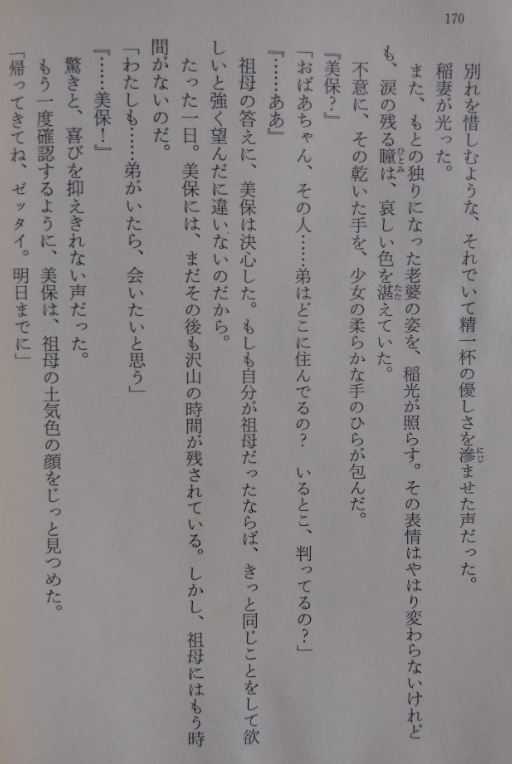 170
別れを惜しむような、それでいて精一杯の優しさを滲ませた声だった。
稲妻が光った。
また、もとの独りになった老婆の姿を、稲光が照らす。その表情はやはり変わらないけれど
も、涙の残る瞳は、哀しい色を湛えていた。
不意に、その乾いた手を、少女の柔らかな手のひらが包んだ。
『美保?』
「おばあちゃん、その人……弟はどこに住んでるの? いるとこ、判ってるの?」
『……ああ』
祖母の答えに、美保は決心した。もしも自分が祖母だったならば、きっと同じことをして欲
しいと強く望んだに違いないのだから。
たった一日。美保には、まだその後も沢山の時間が残されている。しかし、祖母にはもう時
間がないのだ。
「わたしも……弟がいたら、会いたいと思う」
『……美保!』
驚きと、喜びを抑えきれない声だった。
もう一度確認するように、美保は、祖母の土気色の顔をじっと見つめた。
「帰ってきてね、ゼッタイ。明日までに」